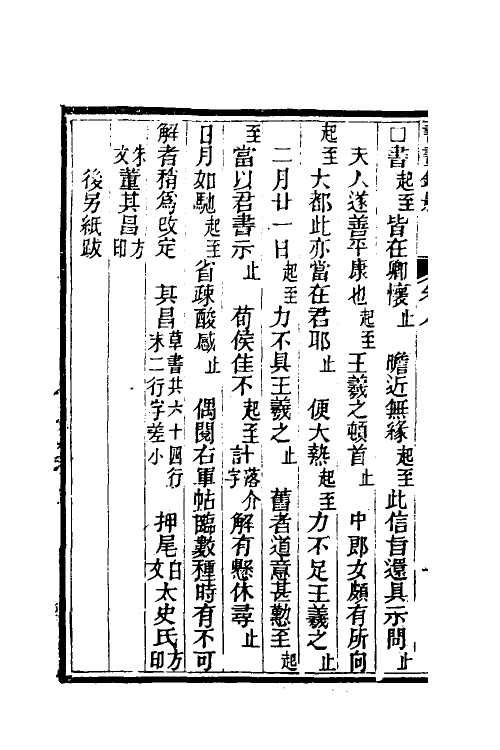 □書起至皆在卿懷止　瞻近無緣起至此信旨還具示問止
夫人遂善平康也起至王羲之頓首止　中郎女頗有所向
起至大都此亦當在君耶止　便大熱起至力不足王羲之止
二月廿一日起至力不具王羲之止　舊者道意甚懃至起
至當以君書示止　荀侯佳不起至計落介字解有懸休尋止
日月如馳起至省疎酸感止　偶閱右軍帖臨數種時有不可
解者稍為改定　其昌草書共六十四行末二行字差小　押尾白文太史氏方印
朱文董其昌方印
後另紙跋